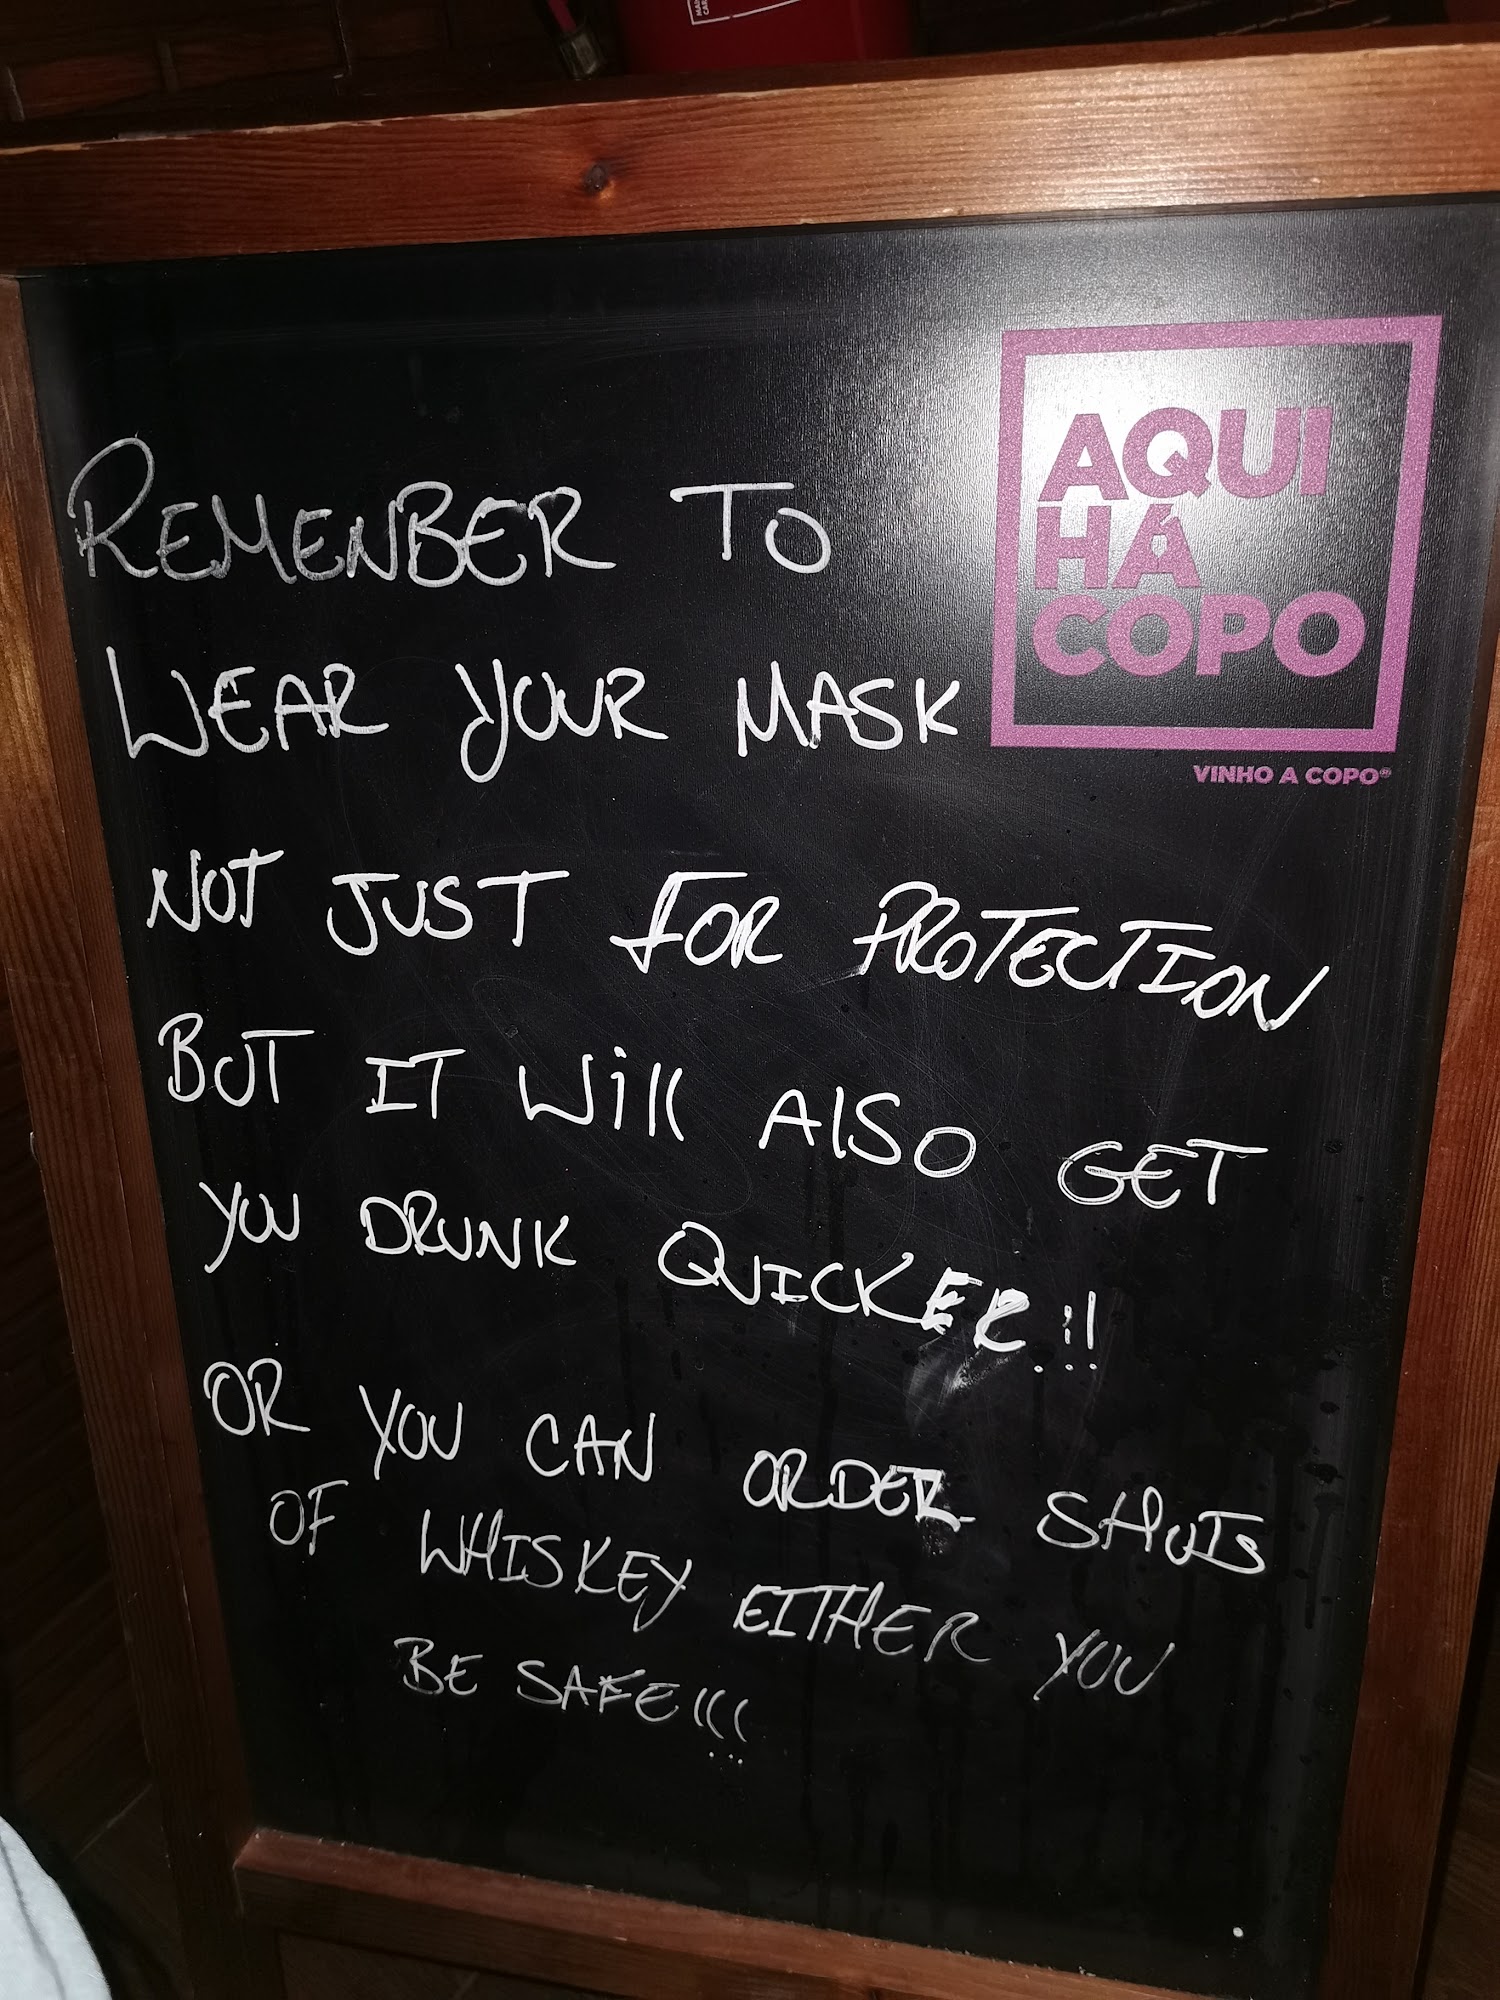 REMENBER TO
WEAR YOUR MASK
NOT JUST FOR PROTECTION
BUT IT Will AlSO GET
YOU DRUNK QUICKER!!!
OR YOU CAN ORDER SHOTS
OF WHISKEY EITHER YOU
BE SAFE!!!
AQUI
HÁ
COPO
VINHO A COPO®